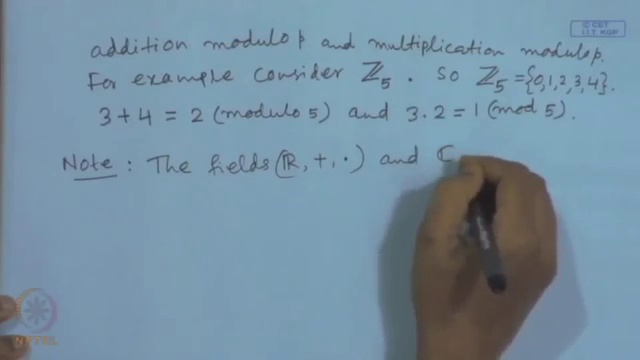 © CET
I.I.T. KGP
addition modulo p and multiplication modulo p.
For example consider ℤ₅. So ℤ₅ = {0,1,2,3,4}.
3 + 4 = 2 (modulo 5) and 3 . 2 = 1 (mod 5).
Note : The fields (ℝ, +, ·) and ℂ
NPTEL